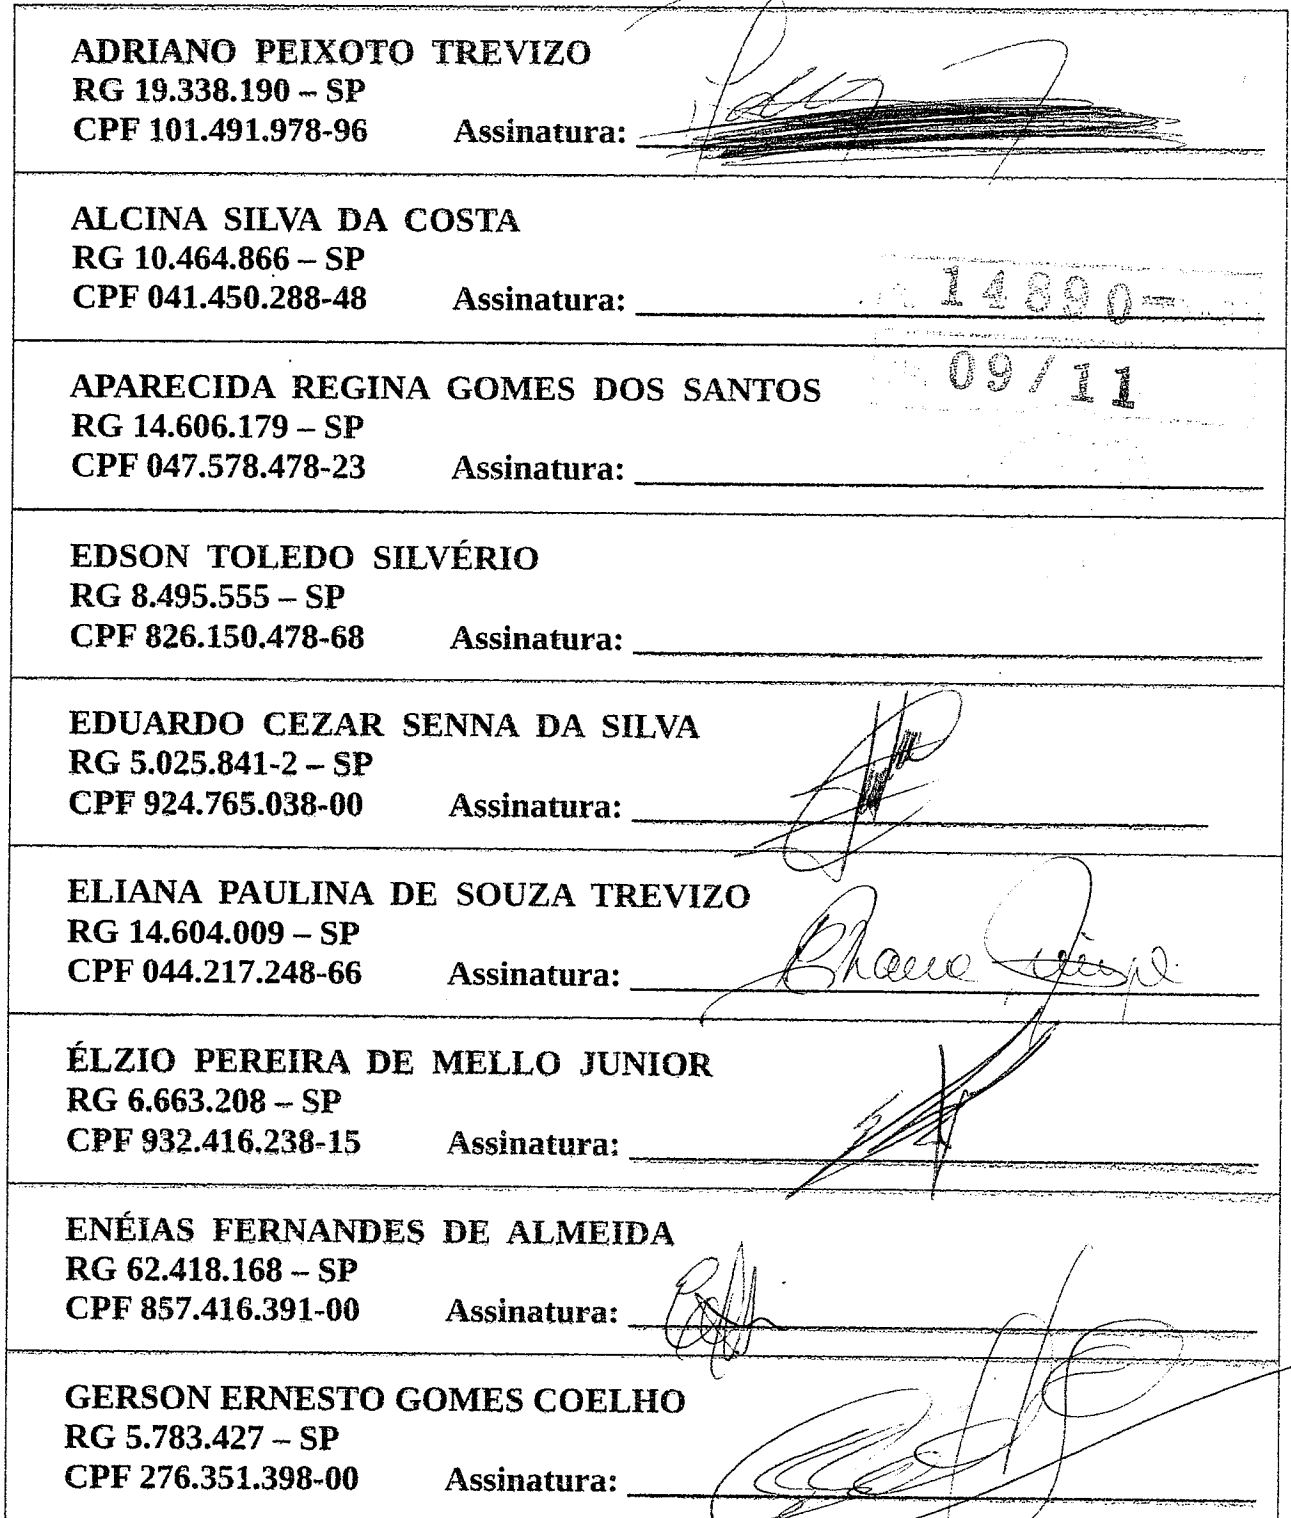 ADRIANO PEIXOTO TREVIZO
RG 19.338.190 – SP
CPF 101.491.978-96 Assinatura:
ALCINA SILVA DA COSTA
RG 10.464.866 – SP
14890-
CPF 041.450.288-48 Assinatura:
09/11
APARECIDA REGINA GOMES DOS SANTOS
RG 14.606.179 – SP
CPF 047.578.478-23 Assinatura:
EDSON TOLEDO SILVÉRIO
RG 8.495.555 – SP
CPF 826.150.478-68 Assinatura:
EDUARDO CEZAR SENNA DA SILVA
RG 5.025.841-2 – SP
CPF 924.765.038-00 Assinatura:
ELIANA PAULINA DE SOUZA TREVIZO
RG 14.604.009 – SP
CPF 044.217.248-66 Assinatura:
ÉLZIO PEREIRA DE MELLO JUNIOR
RG 6.663.208 – SP
CPF 932.416.238-15 Assinatura:
ENÉIAS FERNANDES DE ALMEIDA
RG 62.418.168 – SP
CPF 857.416.391-00 Assinatura:
GERSON ERNESTO GOMES COELHO
RG 5.783.427 – SP
CPF 276.351.398-00 Assinatura: